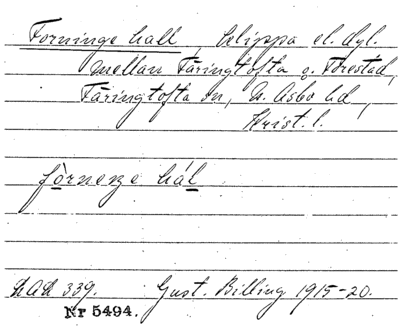 Forninge hall, klippa el. dyl.
mellan Färingtofta o. Forestad,
Färingtofta sn, N. Åsbo hd,
Krist. l.
fòrneŋe hál
LAL 339. Gust. Billing 1915-20.
Nr 5494.